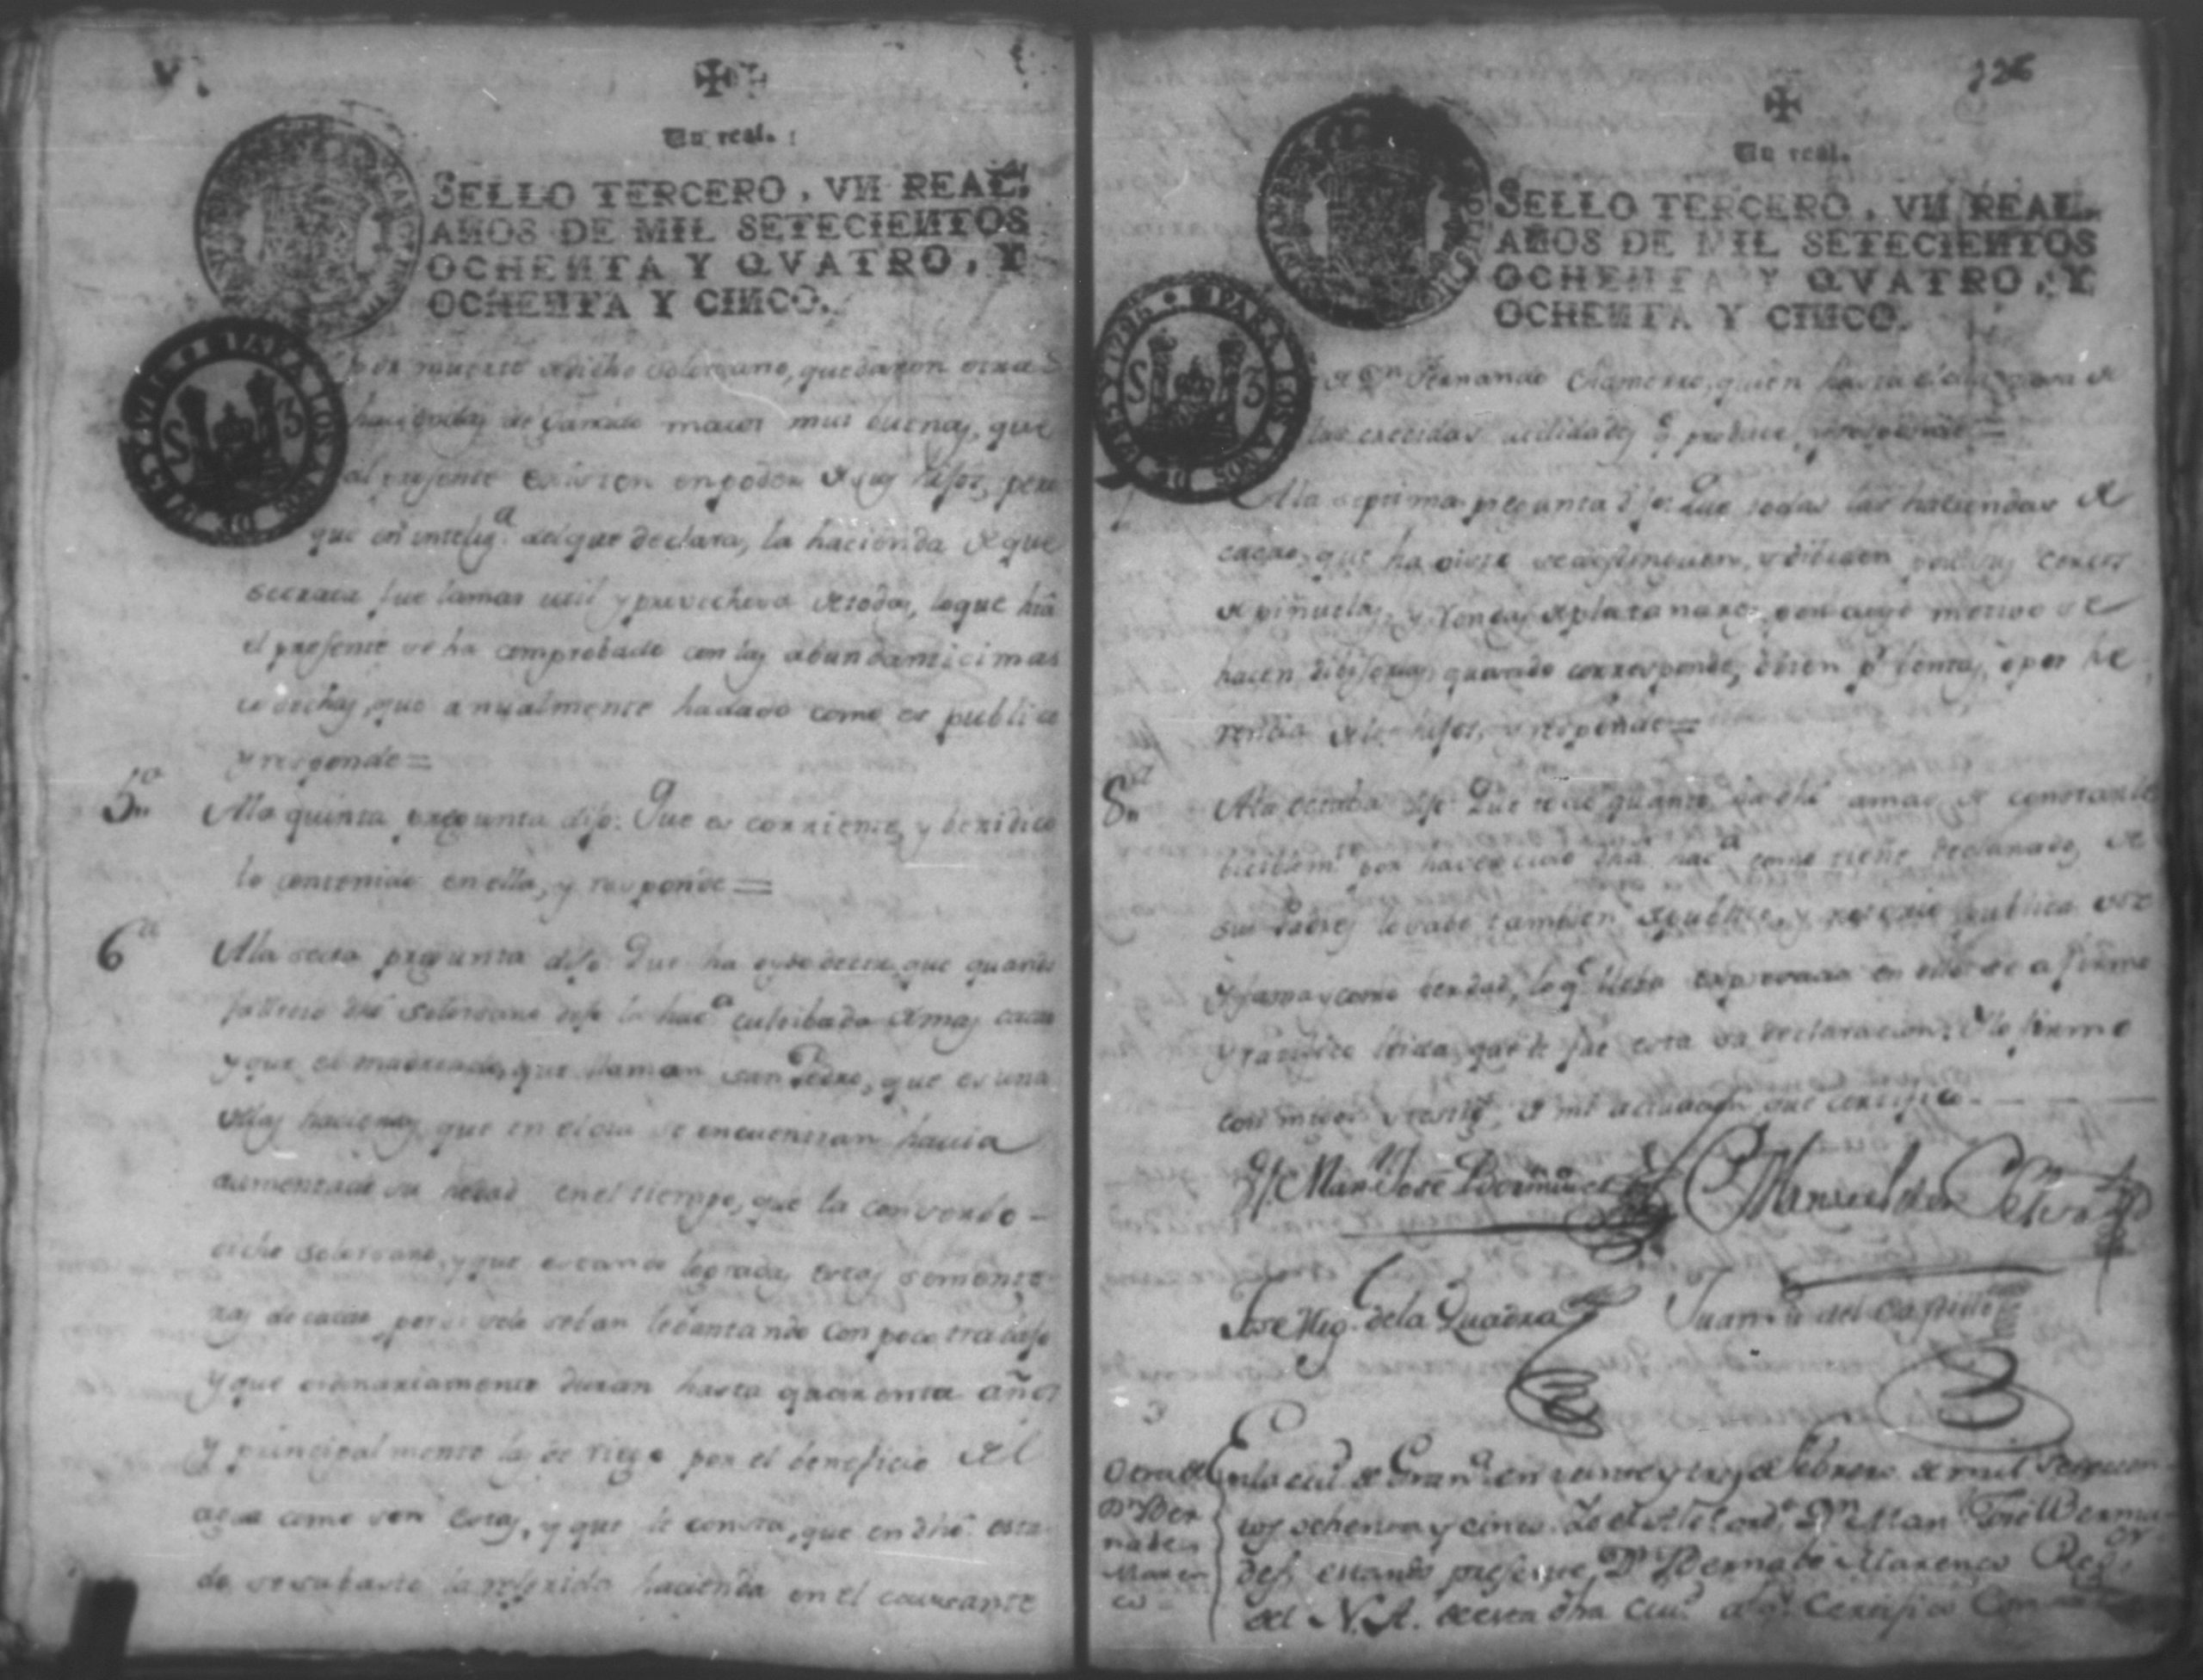 Un real.
SELLO TERCERO, VN REAL,
AÑOS DE MIL SETECIENTOS
OCHENTA Y QVATRO, Y
OCHENTA Y CINCO.
PARA LOS AÑOS DE 1785 Y 1786
S 3
por muerte de dicho Solorzano, quedaron otras
haciendas de ganado maior mui buenas, que
al presente existen en poder de sus hijos, pero
que en intelig.a del que declara, la hacienda de que
se trata fue la mas util y provechosa de todas, lo que hta
el presente se ha comprobado con las abundanticimas
cosechas, que anualmente ha dado como es publico
y responde=
5.a
A la quinta pregunta dijo: Que es corriente, y beridico
lo contenido en ella, y responde=
6.a
A la sexta pregunta dijo Que ha oydo decir, que quando
fallecio dho Solorzano dejo la hac.a cultibada de mas cacao
y que el madreado, que llaman San Pedro, que es una
de las haciendas que en el dia se encuentran havia
aumentado su en el tiempo, que la
dicho Solorzano, y que estando logradas estas
de cacao, por si solo se ban lebantando con poco trabajo
y que ordinariamente duran hasta quarenta años
y principalmente las de riego por el beneficio del
agua como son estas, y que le consta, que en dho esta
do se la referida hacienda en el
226
Un real.
SELLO TERCERO, VN REAL.
AÑOS DE MIL SETECIENTOS
OCHENTA Y QVATRO, Y
OCHENTA Y CINCO.
PARA LOS AÑOS DE 1785 Y 1786
S 3
de Dn Fernando Chamorro, quien hasta el dia goza de
las crecidas utilidades q.e produce, y responde=
A la septima pregunta dijo Que todas las haciendas de
cacao, que ha visto se distinguen, y dibiden por sus cercos
de piñuelas, y rondas de platanares, por cuyo motivo se
hacen dibisorias quando corresponde, o bien p.r bentas, o por he
rencia de los hijos, y responde=
8.a
A la octaba dijo Que todo quanto ha dho amas de constarle
por haver sido dha hac.a como tiene declarado, de
sus Padres lo sabe tambien de publico, y notorio publica voz
y fama y como berdad, lo q.e lleba expresado en ello se afirmo
y ratifico leida, que le fue esta su declaracion. Y lo firmo
con migo y testig.s de mi actuacion que certifico.
Man.l José Manuel de
Jose Mig.l de la Quadra Juan del Castillo
Otra de
Dn Ber
nabe
Maren
co
En la ciu.d de Gran.da en veinte y tres de Febrero de mil setecien
tos ochenta y cinco. Yo el Alc.e ord.o Dn Man.l José Bermu
des, estando presente, Dn Bernabe Marenco Reg.or
del N. A. de esta dha Ciu.d a q.n Certifico